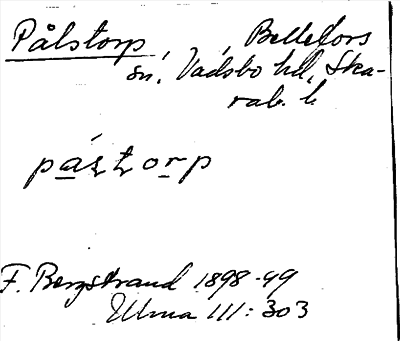 Pålstorp, Bellefors
sn, Vadsbo hd, Ska-
rab. l.
pástorp
F. Bergstrand 1898-99
Ulma 111:303